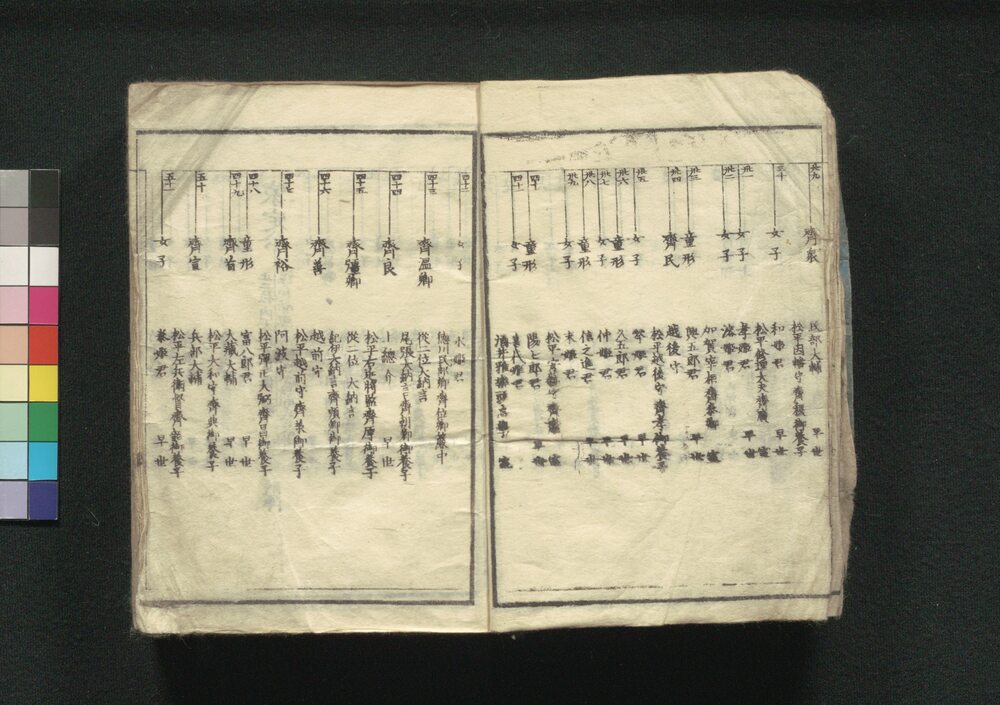 廿九 齊衆 民部大輔 早世
松平因幡守齊稷御養子
三十 女子 和姫君 早世
松平修理大夫齊 室
卅一 女子 孝姫君 早世
卅二 女子 溶姫君
加賀宰相齊泰卿 室
卅三 童形 與五郎君 早世
卅四 齊民 越後守
松平越後守齊孝御養子
卅五 女子 琴姫君 早世
卅六 童形 久五郎君 早世
卅七 女子 仲姫君 早世
卅八 童形 信之進君 早世
卅九 女子 末姫君
松平安藝守齊 室
四十 童形 陽七郎君 早世
四十一 女子 喜代姫君
酒井雅樂頭忠學 室
四十二 女子 永姫君
徳川民部卿齊位卿簾中
四十三 齊温卿 從二位大納言
尾張大納言齊朝卿御養子
四十四 齊良 上總介 早世
松平右近將監齊厚御養子
四十五 齊彊卿 從一位大納言
紀伊大納言齊順卿御養子
四十六 齊善 越前守
松平越前守齊承御養子
四十七 齊裕 阿波守
松平彈正大弼齊昌御養子
四十八 童形 富八郎君 早世
四十九 齊省 大藏大輔 早世
松平大和守齊典御養子
五十 齊宣 兵部大輔
松平左兵衛督齊韶御養子
五十一 女子 泰姫君 早世